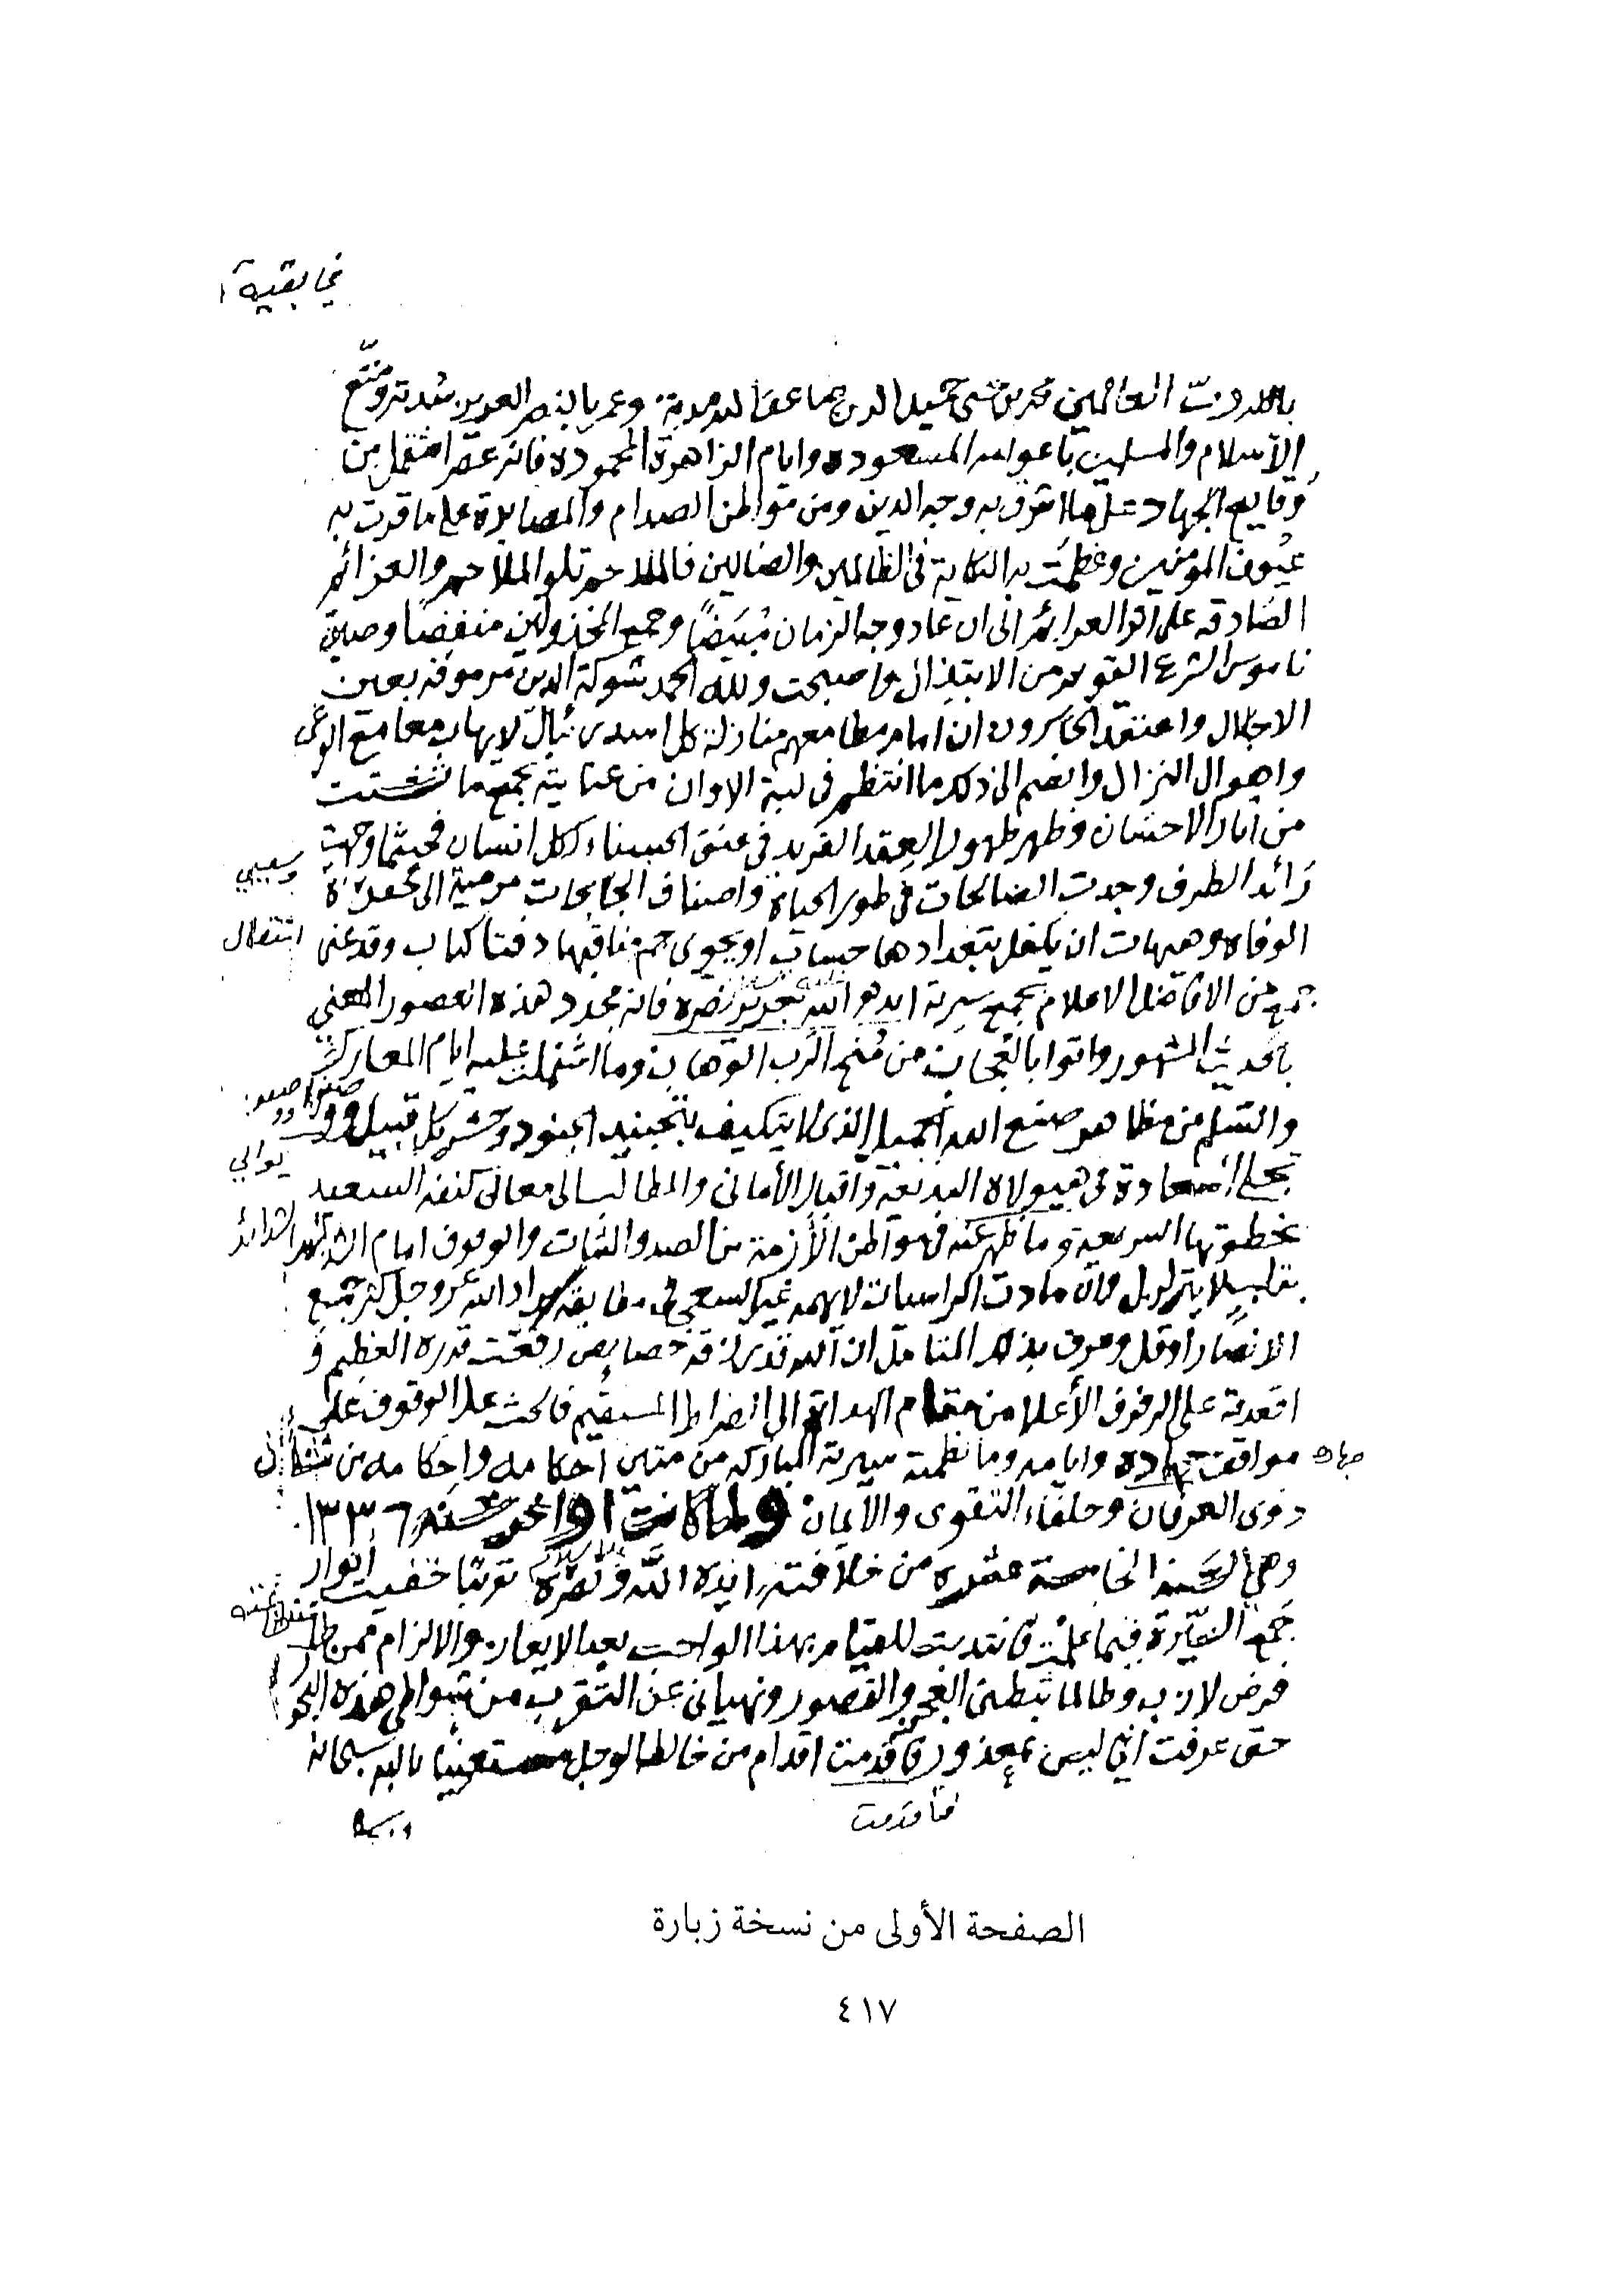 في بقية
بالله رب العالمين محمد بن يحيى حميد الدين حماه الله وعمر بالنصر العزيز مدته ومتّع
الاسلام والمسلمين باعوامه المسعوده وايام الزاهرة المحموده فانه عصر اشتمل من
وقايع الجهاد على ما اشرق به وجه الدين ومن مواطن الصدام والمصابرة على ما قرت به
عيون المؤمنين وعظمت به النكاية في الظالمين والضالين فالملاحم تلو الملاحم والعزائم
الصادقه على اثر العزائم الى ان عاد وجه الزمان مبيضاً وجمع المخذولين منفضا وصين
ناموس الشرع القويم من الابتذال واصبحت ولله الحمد شوكة الدين مرموقه بعين
الاجلال واعتقد الخاسرون ان امام مطامعهم منازلة كل اسد رئبال لا يهاب معامع الوغى
واهوال النزال وانضم الى ذلك ما انتظم في لبة الاوان من عنايته بجمع ما تشتت
من آثار الاحسان وظهر ظهور العقد الفريد في عنق الحسناء لكل انسان فحيثما وجهت
رائد الطرف وجدت الصالحات في طور الحياة واصناف الجائحات مرمية الى
الوفاه وهيهات ان يكفل بتعدادها حساب او يحوي جم مناقبها دفتا كتاب وقد عنى
انتقال
جمع من الافاضل الاعلام بجمع سيرته ايده الله بعزيز نصره فانه مجدد هذه العصور المعني
بالحديث المشهور واتوا بالعجاب من منح الرب الوهاب وما اشتملت عليه ايام المعارك
والسلم من مظاهر صنع الله الجميل الذي لا يتكيف بتجنيد الجنود وحشر كل قبيل و
يوالي
تجلي السعادة في هيولاه البديعة واقبال الأماني والمطالب الى معاني كنفه السعيد
بخطوتها السريعة وما ظهر عنه في مواطن الأزمة من الصبر والثبات والوقوف امام
الشدائد
بقلب لا يتزلزل وان مادت الراسيات لا يهمه غير السعي في مطابقة مراد الله عز وجل كثر جمع
الانصار او قل وعرف بذلك المتأمل ان الله قد رزقه خصايص رفعت قدره العظيم و
اقعدته على الرفرف الأعلا من مقام الهداة الى الصراط المستقيم فالحث على الوقوف على
جهاده
مواقف جهاده وايامه وما نظمته سيرته المباركه من متين احكامه واحكامه من شأن
ذوى العرفان وحلفاء التقوى والأيمان ولما كانت اواخر سنة ١٣٣٦
وهي السنة الخامسة عشره من خلافته ايده الله ونصره تقريبا خفيت أنوار
جمع السيرة فيما علمت فانتدبت للقيام بهذا الواجب بعد الايعاز والالزام ممن
فرض لازب وطالما ثبطني العجز والقصور ونهياني عن التقرب من شواطي هذه البحور
حتى عرفت اني ليس بمعذور فاقدمت اقدام من خالطه الوجل مستعينا بالله سبحانه
فأقدمت
الصفحة الأولى من نسخة زبارة
٤١٧